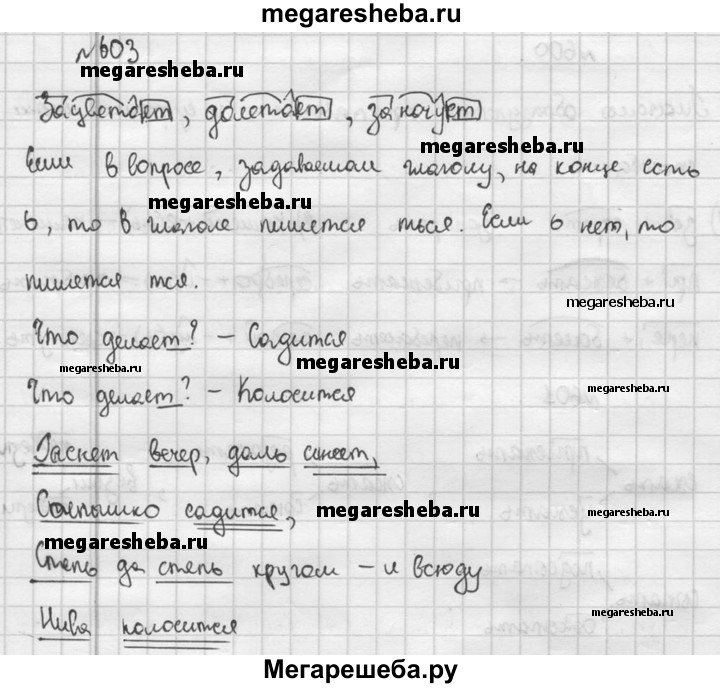 megaresheba.ru
№603
megaresheba.ru
Зацветает, долетает, заночует
megaresheba.ru
Если в вопросе, задаваемом глаголу, на конце есть
megaresheba.ru
ь, то в глаголе пишется ться. Если ь нет, то
пишется тся.
megaresheba.ru
Что делает? – Садится
megaresheba.ru
megaresheba.ru
Что делает? – Колосится
megaresheba.ru
Гаснет вечер, даль синеет,
Солнышко садится,
megaresheba.ru
megaresheba.ru
megaresheba.ru
Степь да степь кругом – и всюду
Нива колосится
megaresheba.ru
Мегарешеба.ру